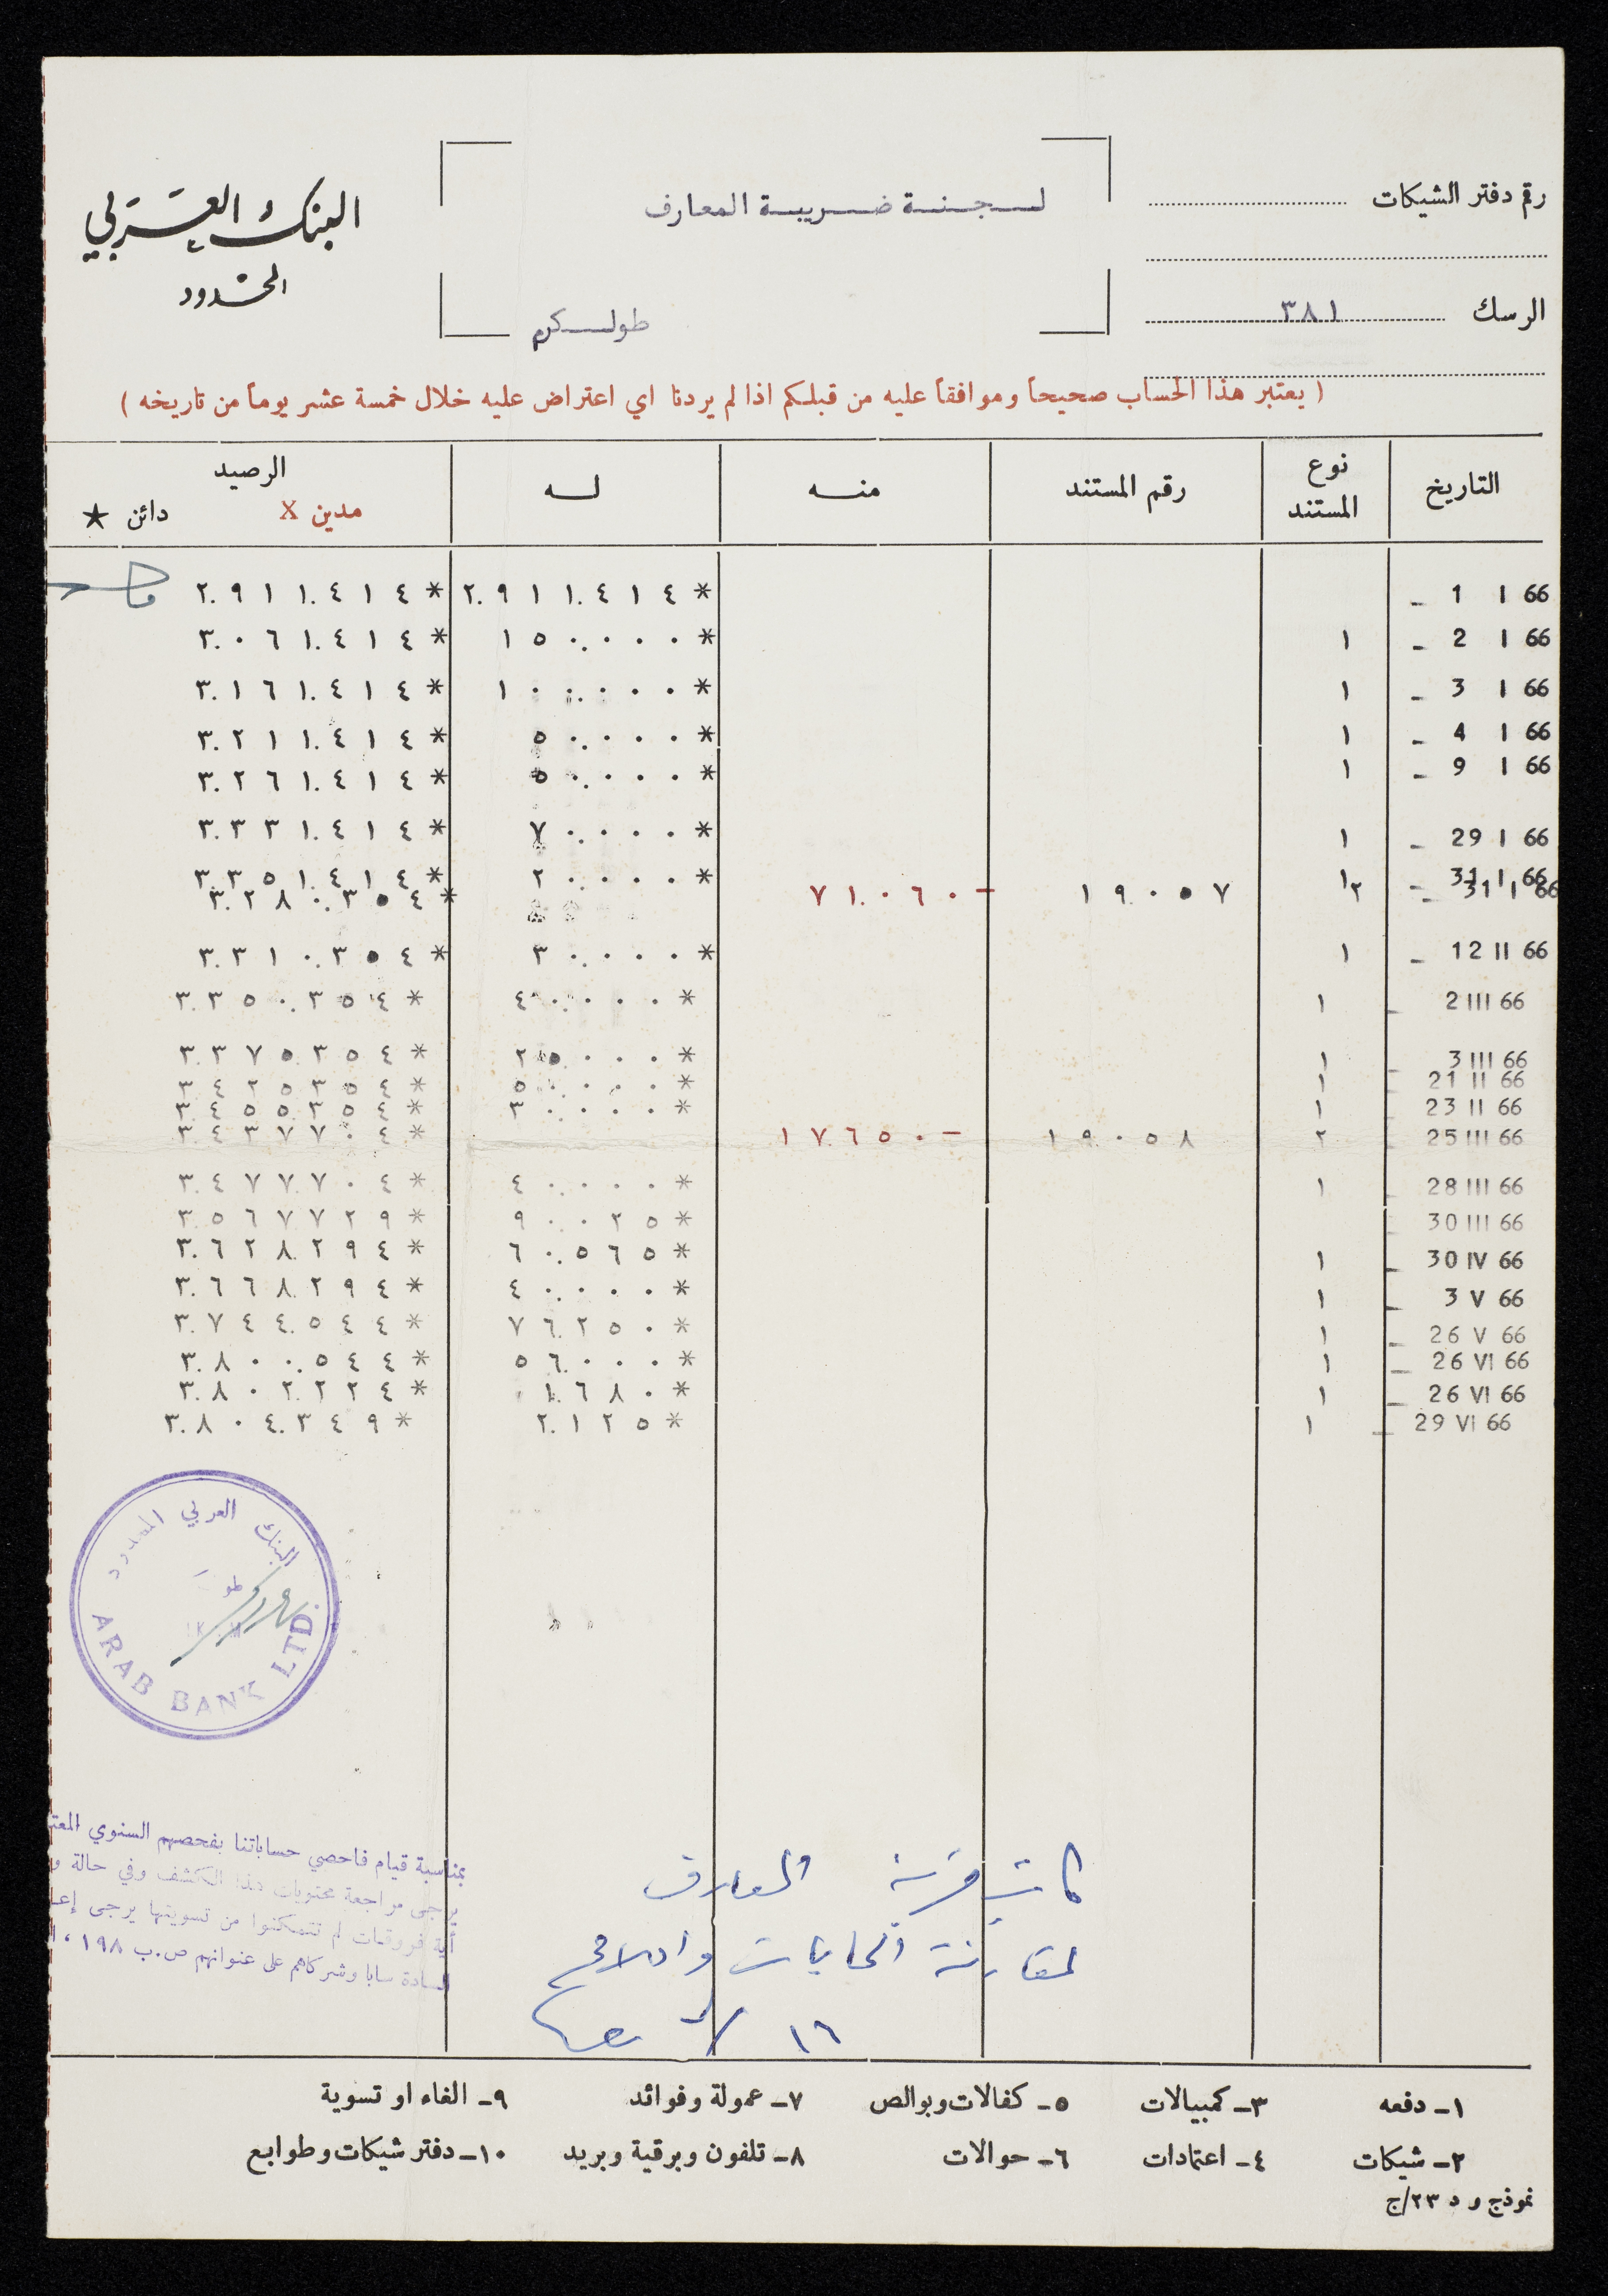 رقم دفتر الشيكات
لجنة ضريبة المعارف
البنك العربي
المحدود
الرسك ٣٨١
طولكرم
( يعتبر هذا الحساب صحيحاً وموافقاً عليه من قبلكم اذا لم يردنا اي اعتراض عليه خلال خمسة عشر يوماً من تاريخه )
التاريخ نوع المستند رقم المستند منه له الرصيد
مدين X دائن ★
1 I 66 * ٢.٩١١.٤١٤ * ٢.٩١١.٤١٤
2 I 66 ١ * ١٥٠.٠٠٠ * ٣.٠٦١.٤١٤
3 I 66 ١ * ١٠٠.٠٠٠ * ٣.١٦١.٤١٤
4 I 66 ١ * ٥٠.٠٠٠ * ٣.٢١١.٤١٤
9 I 66 ١ * ٥٠.٠٠٠ * ٣.٢٦١.٤١٤
29 I 66 ١ * ٧٠.٠٠٠ * ٣.٣٣١.٤١٤
31 I 66 ١ * ٢٠.٠٠٠ * ٣.٣٥١.٤١٤
31 I 66 ٢ ١٩.٠٥٧ - ٧١.٠٦٠ * ٣.٢٨٠.٣٥٤
12 II 66 ١ * ٣٠.٠٠٠ * ٣.٣١٠.٣٥٤
2 III 66 ١ * ٤٠.٠٠٠ * ٣.٣٥٠.٣٥٤
3 III 66 ١ * ٢٥.٠٠٠ * ٣.٣٧٥.٣٥٤
21 II 66 ١ * ٥٠.٠٠٠ * ٣.٤٢٥.٣٥٤
23 II 66 ١ * ٣٠.٠٠٠ * ٣.٤٥٥.٣٥٤
25 III 66 ٢ ١٩.٠٥٨ - ١٧.٦٥٠ * ٣.٤٣٧.٧٠٤
28 III 66 ١ * ٤٠.٠٠٠ * ٣.٤٧٧.٧٠٤
30 III 66 * ٩٠.٠٢٥ * ٣.٥٦٧.٧٢٩
30 IV 66 ١ * ٦٠.٥٦٥ * ٣.٦٢٨.٢٩٤
3 V 66 ١ * ٤٠.٠٠٠ * ٣.٦٦٨.٢٩٤
26 V 66 ١ * ٧٦.٢٥٠ * ٣.٧٤٤.٥٤٤
26 VI 66 ١ * ٥٦.٠٠٠ * ٣.٨٠٠.٥٤٤
26 VI 66 ١ * ١.٦٨٠ * ٣.٨٠٢.٢٢٤
29 VI 66 ١ * ٢.١٢٥ * ٣.٨٠٤.٣٤٩
البنك العربي المحدود
ARAB BANK LTD.
بمناسبة قيام فاحصي حساباتنا بفحصهم السنوي المعت
يرجى مراجعة محتويات هذا الكشف وفي حالة و
أية فروقات لم تتمكنوا من تسويتها يرجى إعـ
السادة سابا وشركاهم على عنوانهم ص.ب ١٩٨ ، ا
المعارف
١٦
١ـ دفعه ٣ـ كمبيالات ٥ـ كفالات وبوالص ٧ـ عمولة وفوائد ٩ـ الغاء او تسوية
٢ـ شيكات ٤ـ اعتمادات ٦ـ حوالات ٨ـ تلفون وبرقية وبريد ١٠ـ دفتر شيكات وطوابع
نموذج و د ٢٣/ج